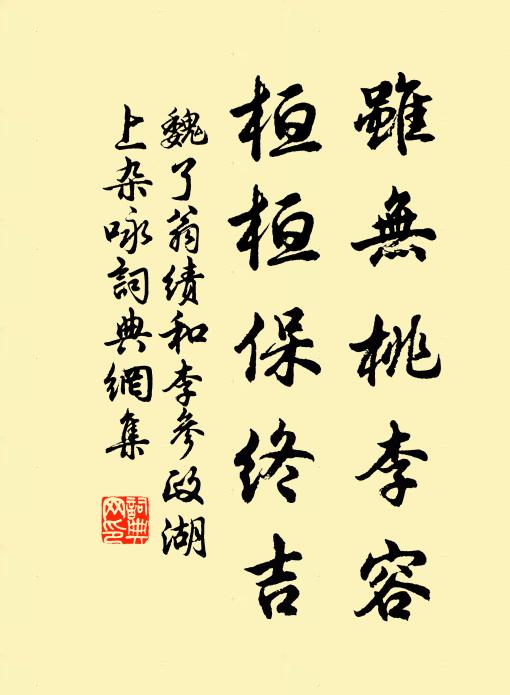 雖無桃李容
桓桓保終吉
魏了翁績和李參政湖
上杂咏詞典網集
詞典
网印